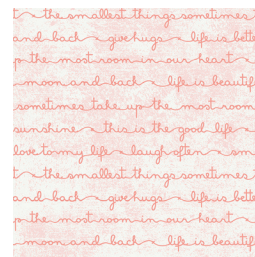 t the smallest things sometimes
and back give hugs life is bette
p the most room in our heart
moon and back life is beautif
sometimes take up the most room
sunshine this is the good life
love to my life laugh often sm
t the smallest things sometimes
and back give hugs life is bette
p the most room in our heart
moon and back life is beautif